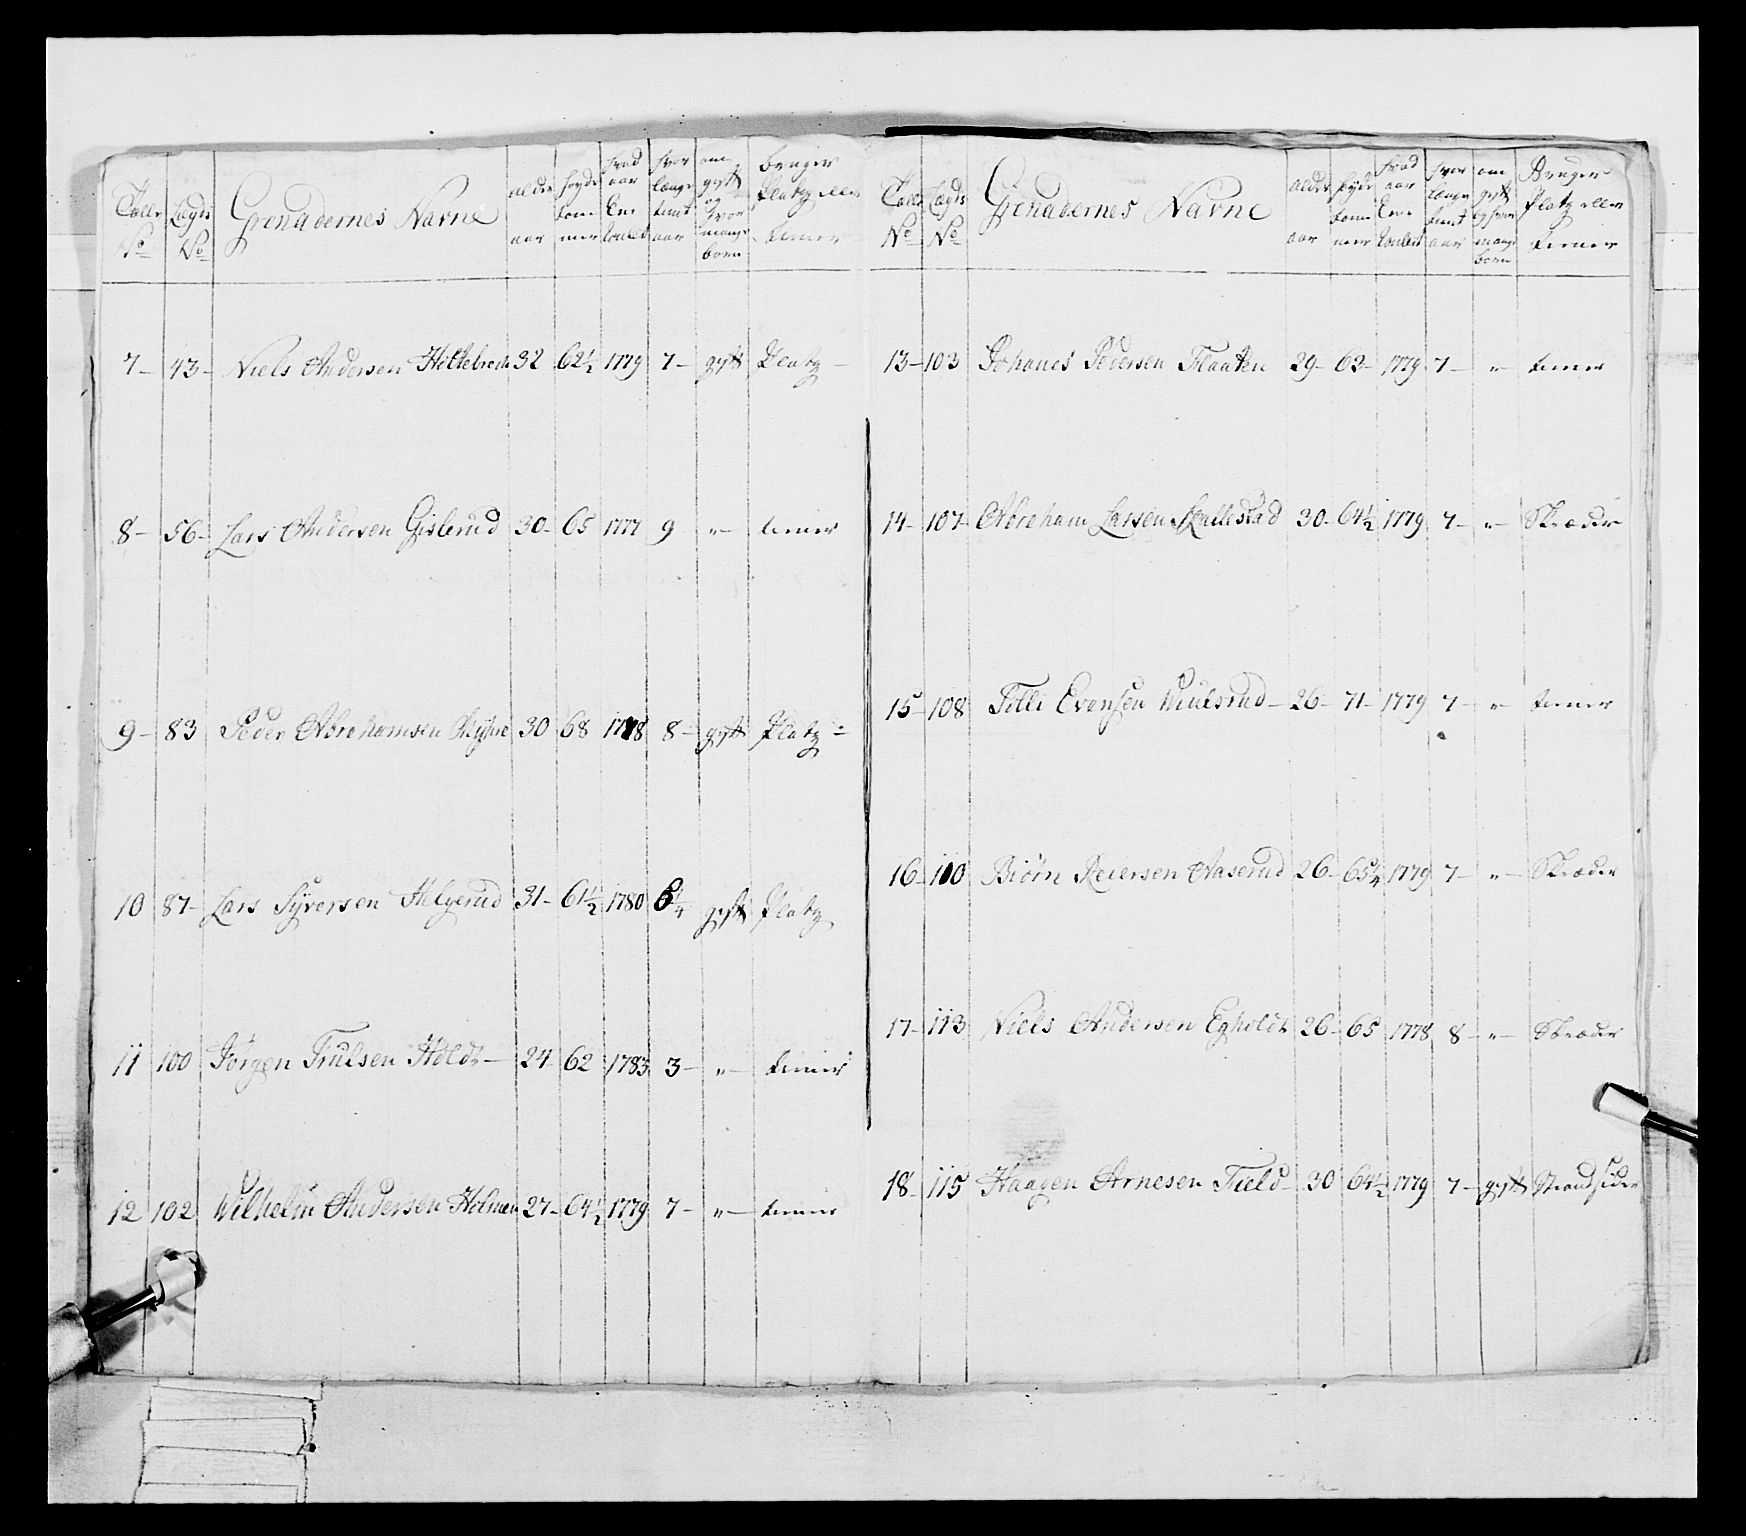 Talle No Lægds No Grenadernes Navne alder aar høyde tommer hvad aar En roullert hvor længe tient aar om gyft og hvor mange børn bruger Platz eller tiener
7 – 43 – Niels Andersen Holtebrech 32 62½ 1779 7 – gyft Platz –
8 – 56 – Lars Andersen Gislerud 30 – 65 1777 9 „ – tiener
9 – 83 Peder Abrahamsen 30 68 1778 8 – gyft Platz
10 87 – Lars Syversen Helgerud 31 – 61½ 1780 6¼ gyft Platz
11 100 Jørgen Trulsen Holdt – 24 62 1783 3 – „ – tiener
12 102 Wilhelm Andersen Holmen 27 – 64½ 1779 7 – „ – tiener
Talle No Lægds No Grenadernes Navne alder aar høyde tommer hvad aar En roullert hvor længe tient aar om gyft og hvor mange børn Bruger Platz eller tiener
13 – 103 Johanes Pedersen Flaaten 29 – 62 – 1779 7 – „ – tiener
14 – 107 – Abraham Larsen Skallestad 30 – 64½ 1779 7 – „ – Skræder
15 – 108 Tolli Evensen Wiulsrud – 26 – 71 – 1779 7 – „ – tiener
16 – 110 Biørn Reiersen Aaserud 26 – 65¼ 1779 7 – „ – Skræder
17 – 113 Niels Andersen Egholdt 26 – 65 1778 8 – „ – Skræder
18 – 115 Haagen Arnesen Field – 30 64½ 1779 7 – gyft Strandsider